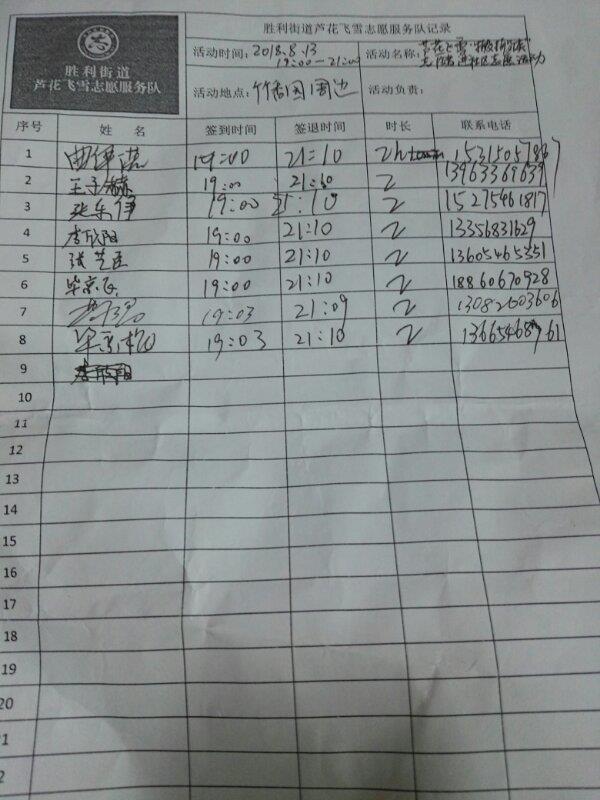 胜利街道芦花飞雪志愿服务队记录
胜利街道
芦花飞雪志愿服务队
活动时间：2018.8.13
19:00—21:00
活动名称：芦花飞雪
活动地点：竹园周边
活动负责：
序号 姓 名 签到时间 签退时间 时长 联系电话
1 19:00 21:10 2h
2 王子赫 19:00 21:10 2 13963369639
3 张乐伊 19:00 21:10 2 15275461817
4 李欣阳 19:00 21:10 2 13356831629
5 张艺臣 19:00 21:10 2 13605465351
6 毕京飞 19:00 21:10 2 18860670928
7 19:03 21:09 2 13082603606
8 19:03 21:10 2
9
10
11
12
13
14
15
16
17
18
19
20